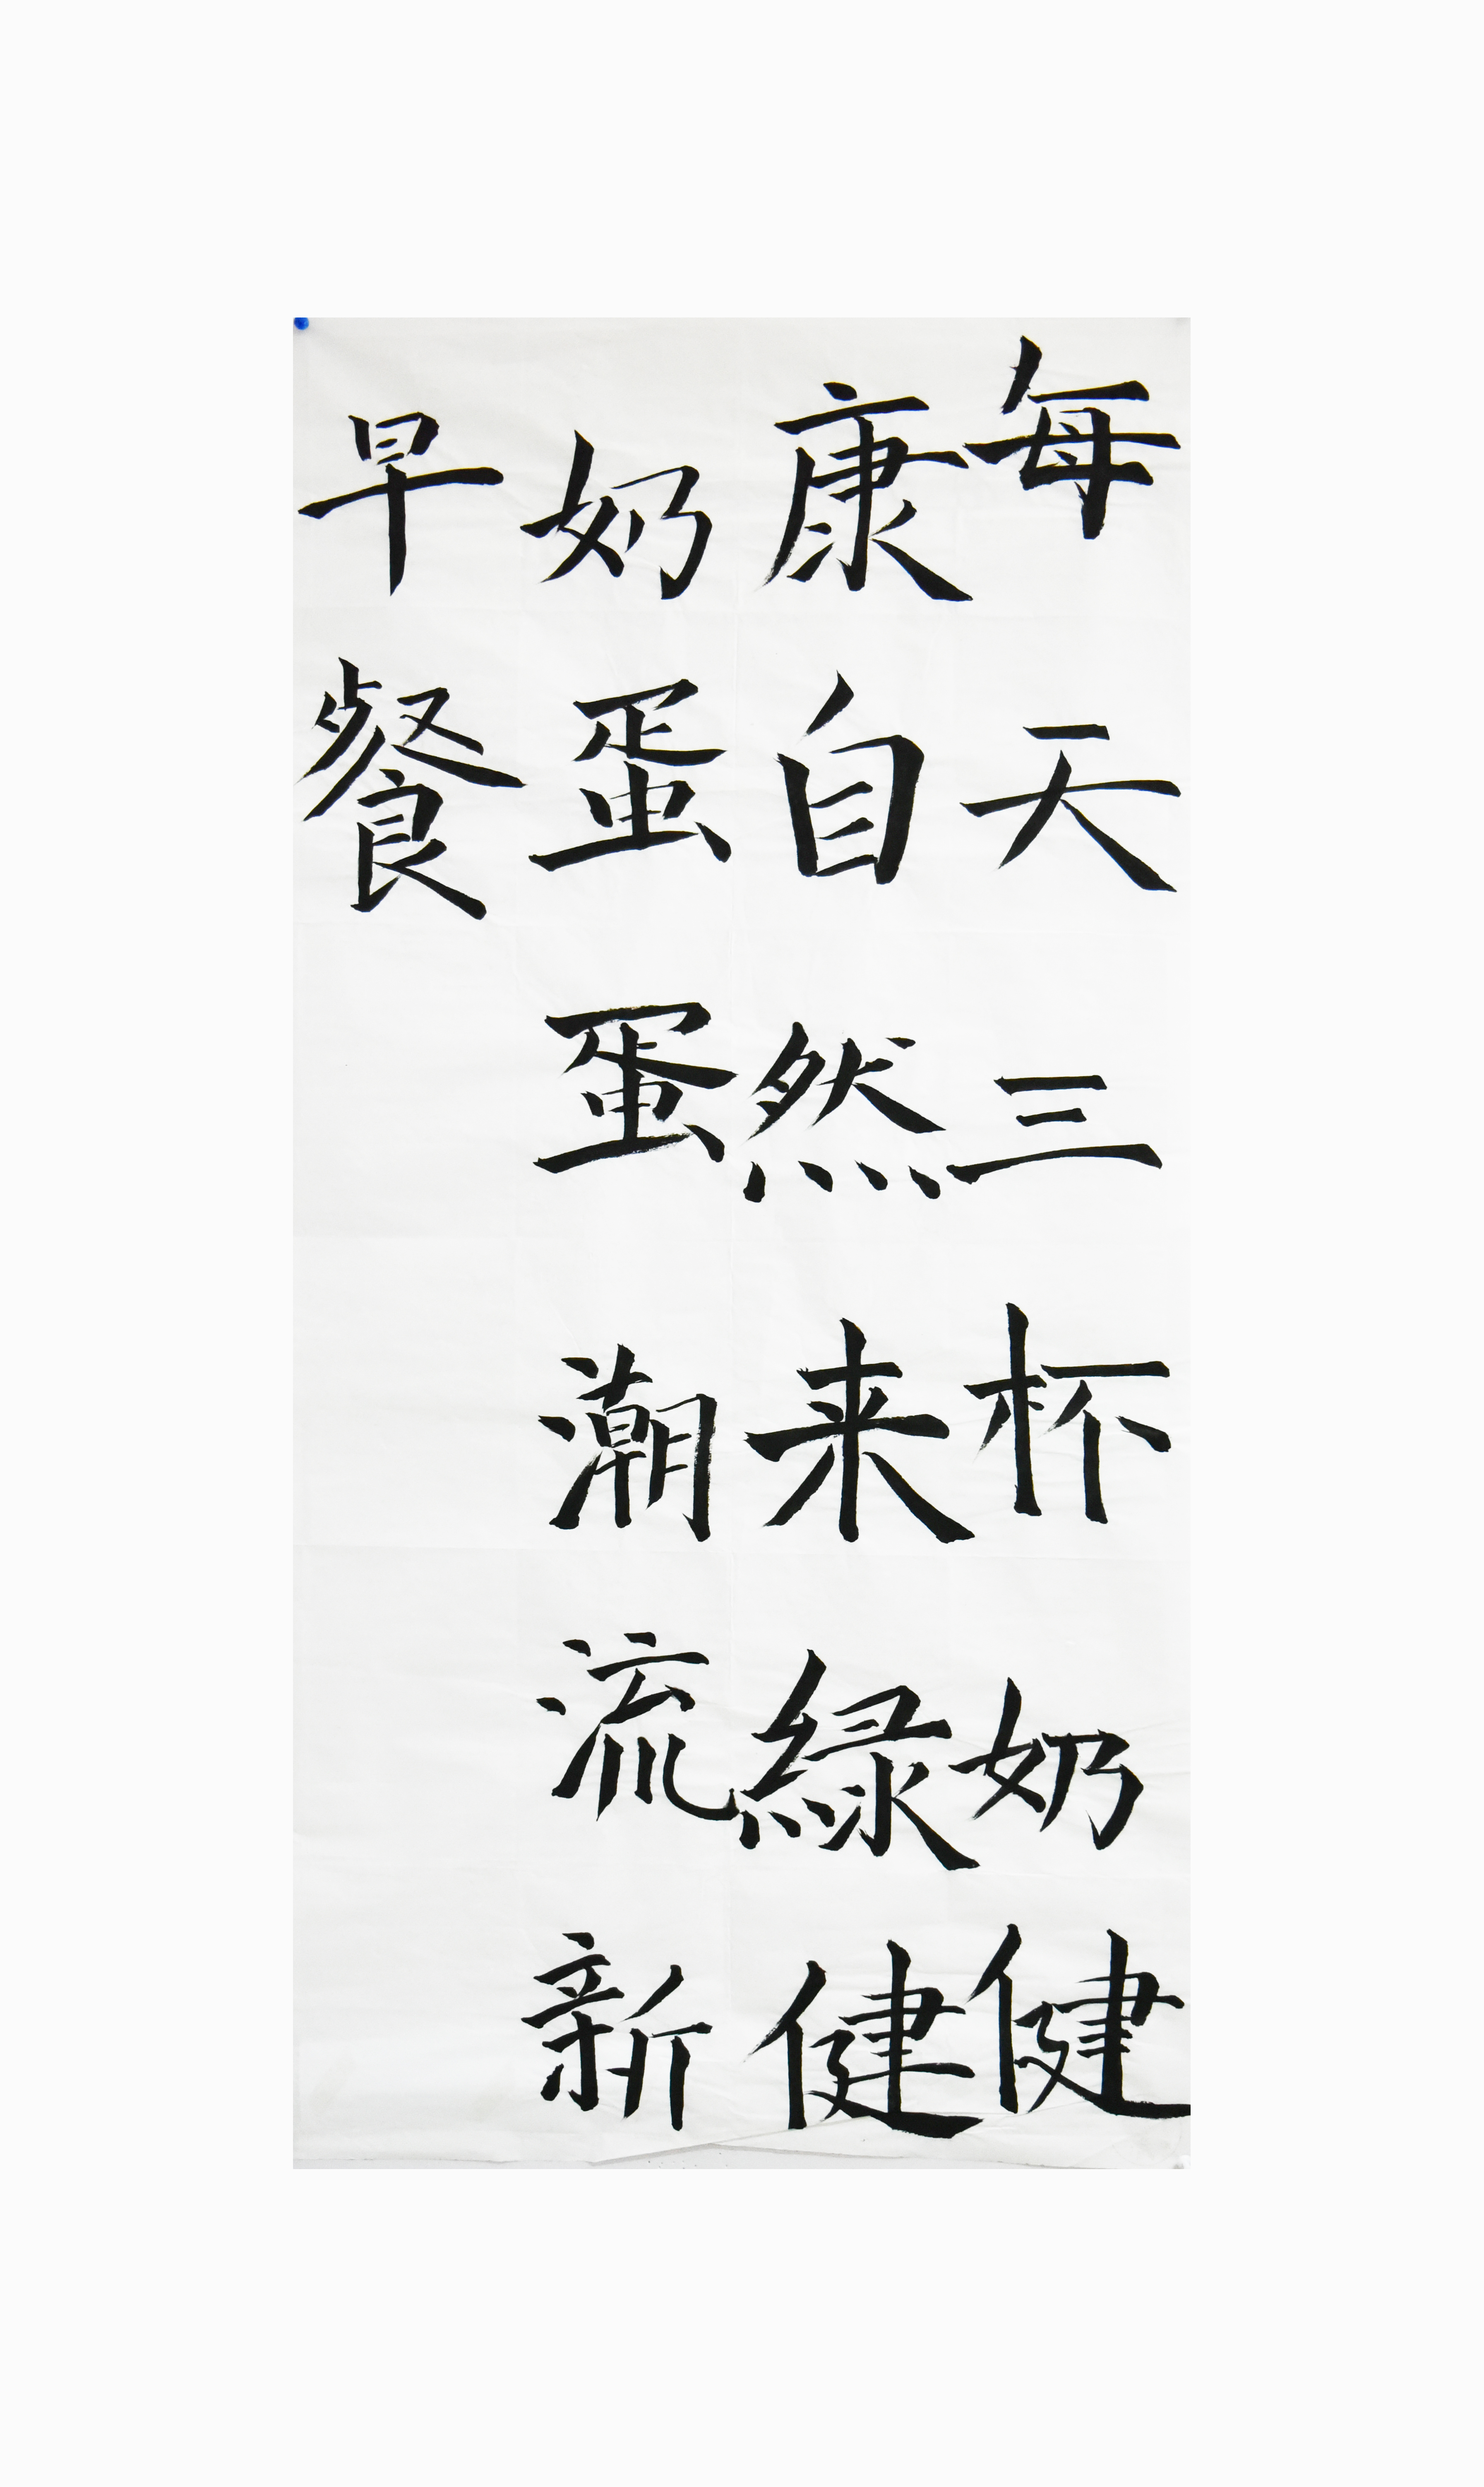 每天三杯奶健
康自然来緑健
奶蛋蛋潮流新
早餐